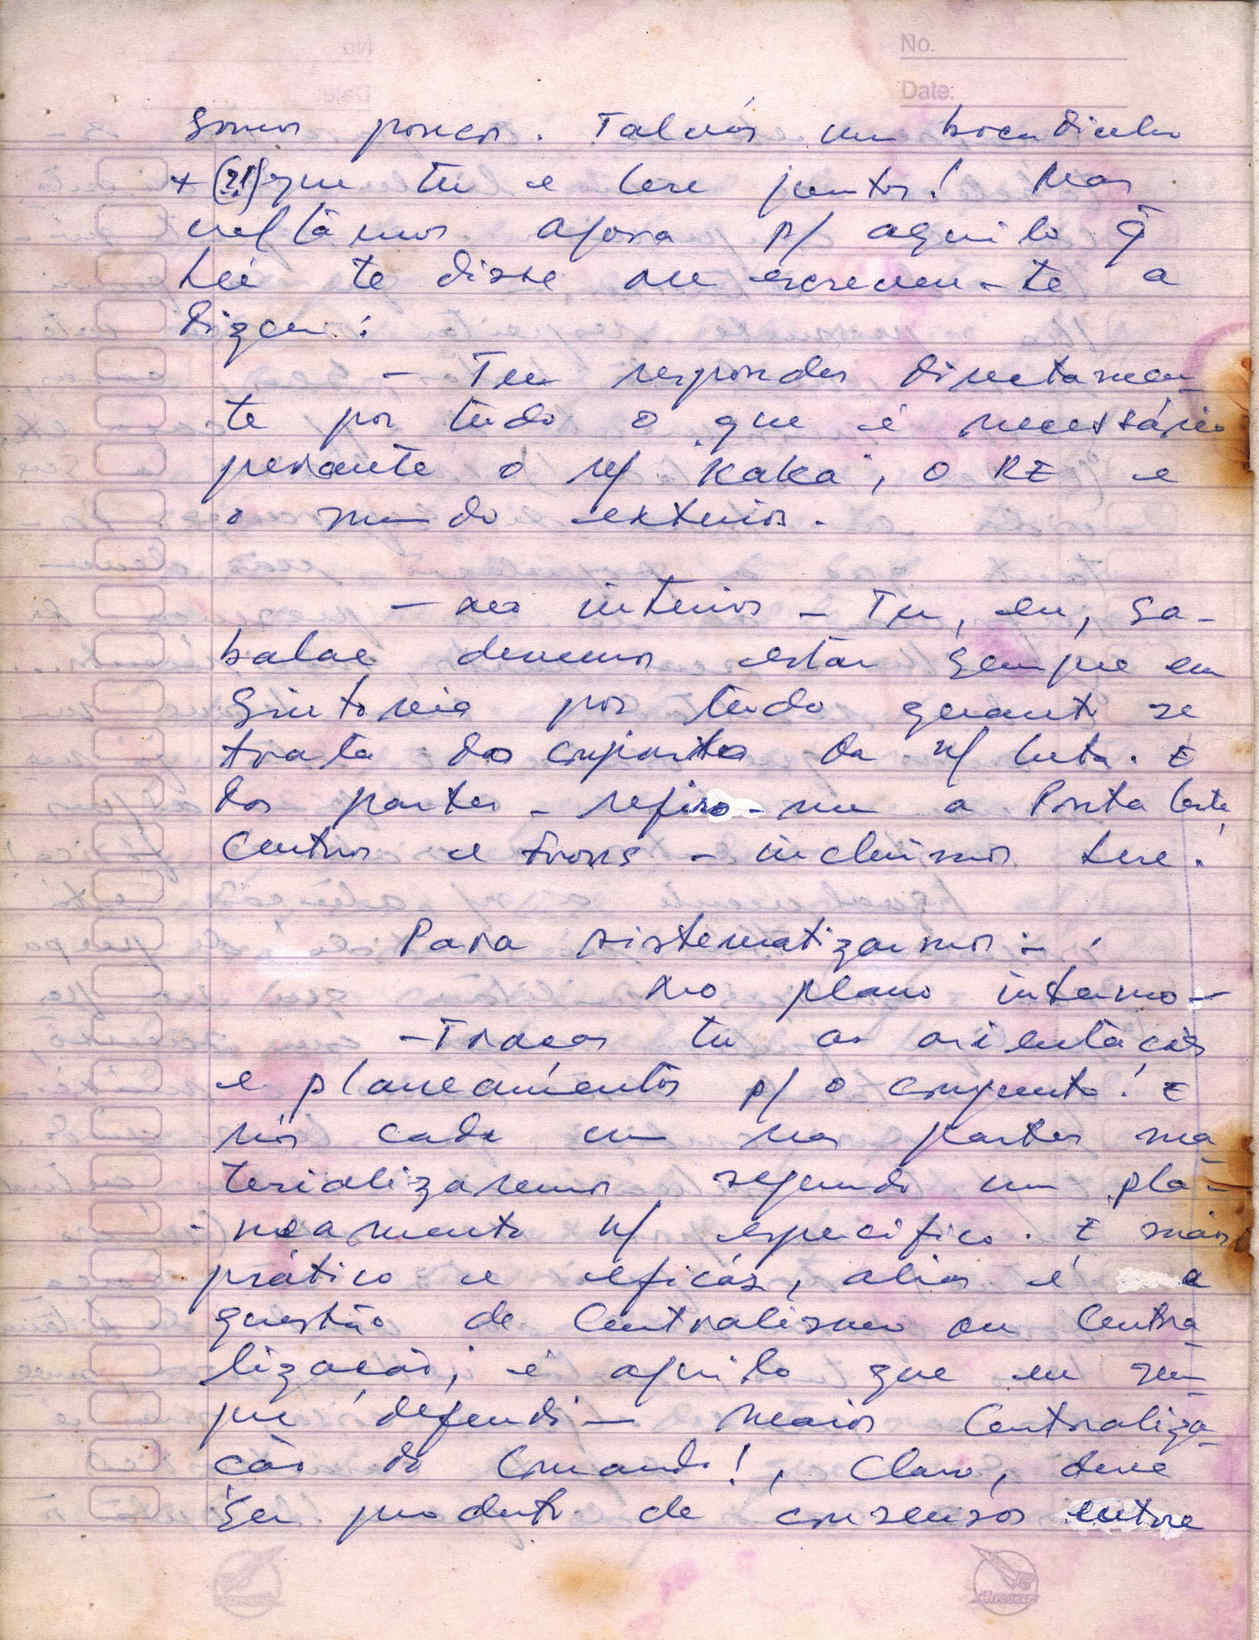 No.
Date:
Somos poucos. Talvês um bocadinho
+ (21) que tu e Lere juntos! Mas
voltâmos agora p/ aquilo q̃
Lei te disse ou escreveu-te a
dizer:
- Tu respondes directamen-
te por tudo o que é necessário
perante o n/ "Kaka", o RE e
o mundo exterior.
- no interior - Tu, eu, Sa-
balae devemos estar sempre em
Sintonia por tudo quanto se
trata do conjunto da n/ luta. E
das partes - refiro-me a Ponta leste,
Centro e Frons - incluimos Lere.
Para sistematizarmos:-
no plano interno -
- Traças tu as orientações
e planeamentos p/ o conjunto! E
nós cada um nas partes ma-
terializaremos segundo um pla-
- neamento n/ específico. E mais
prático e eficáz, alias é a
questão de Centralismo ou Centra-
lização, é aquilo que eu sem-
pre defendi - maior Centraliza-
ção do Comando!, Claro, deve
ser produto de consensos entre